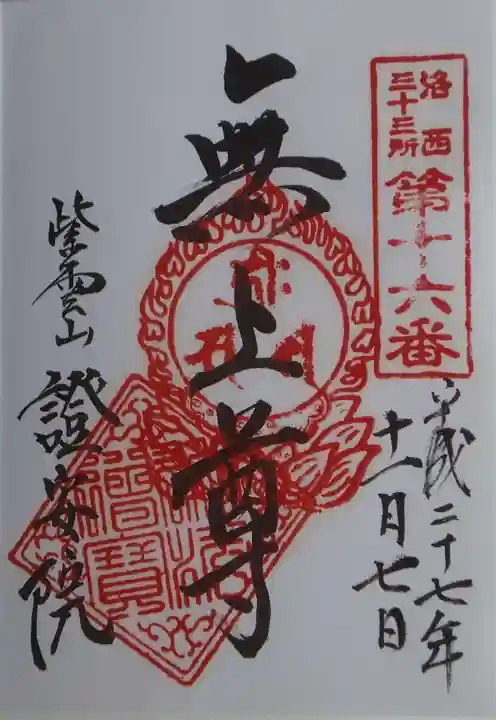 洛西
三十三所
第十六番
平成二十七年
十一月七日
無上尊
紫雲山
證安院
佛法僧寶